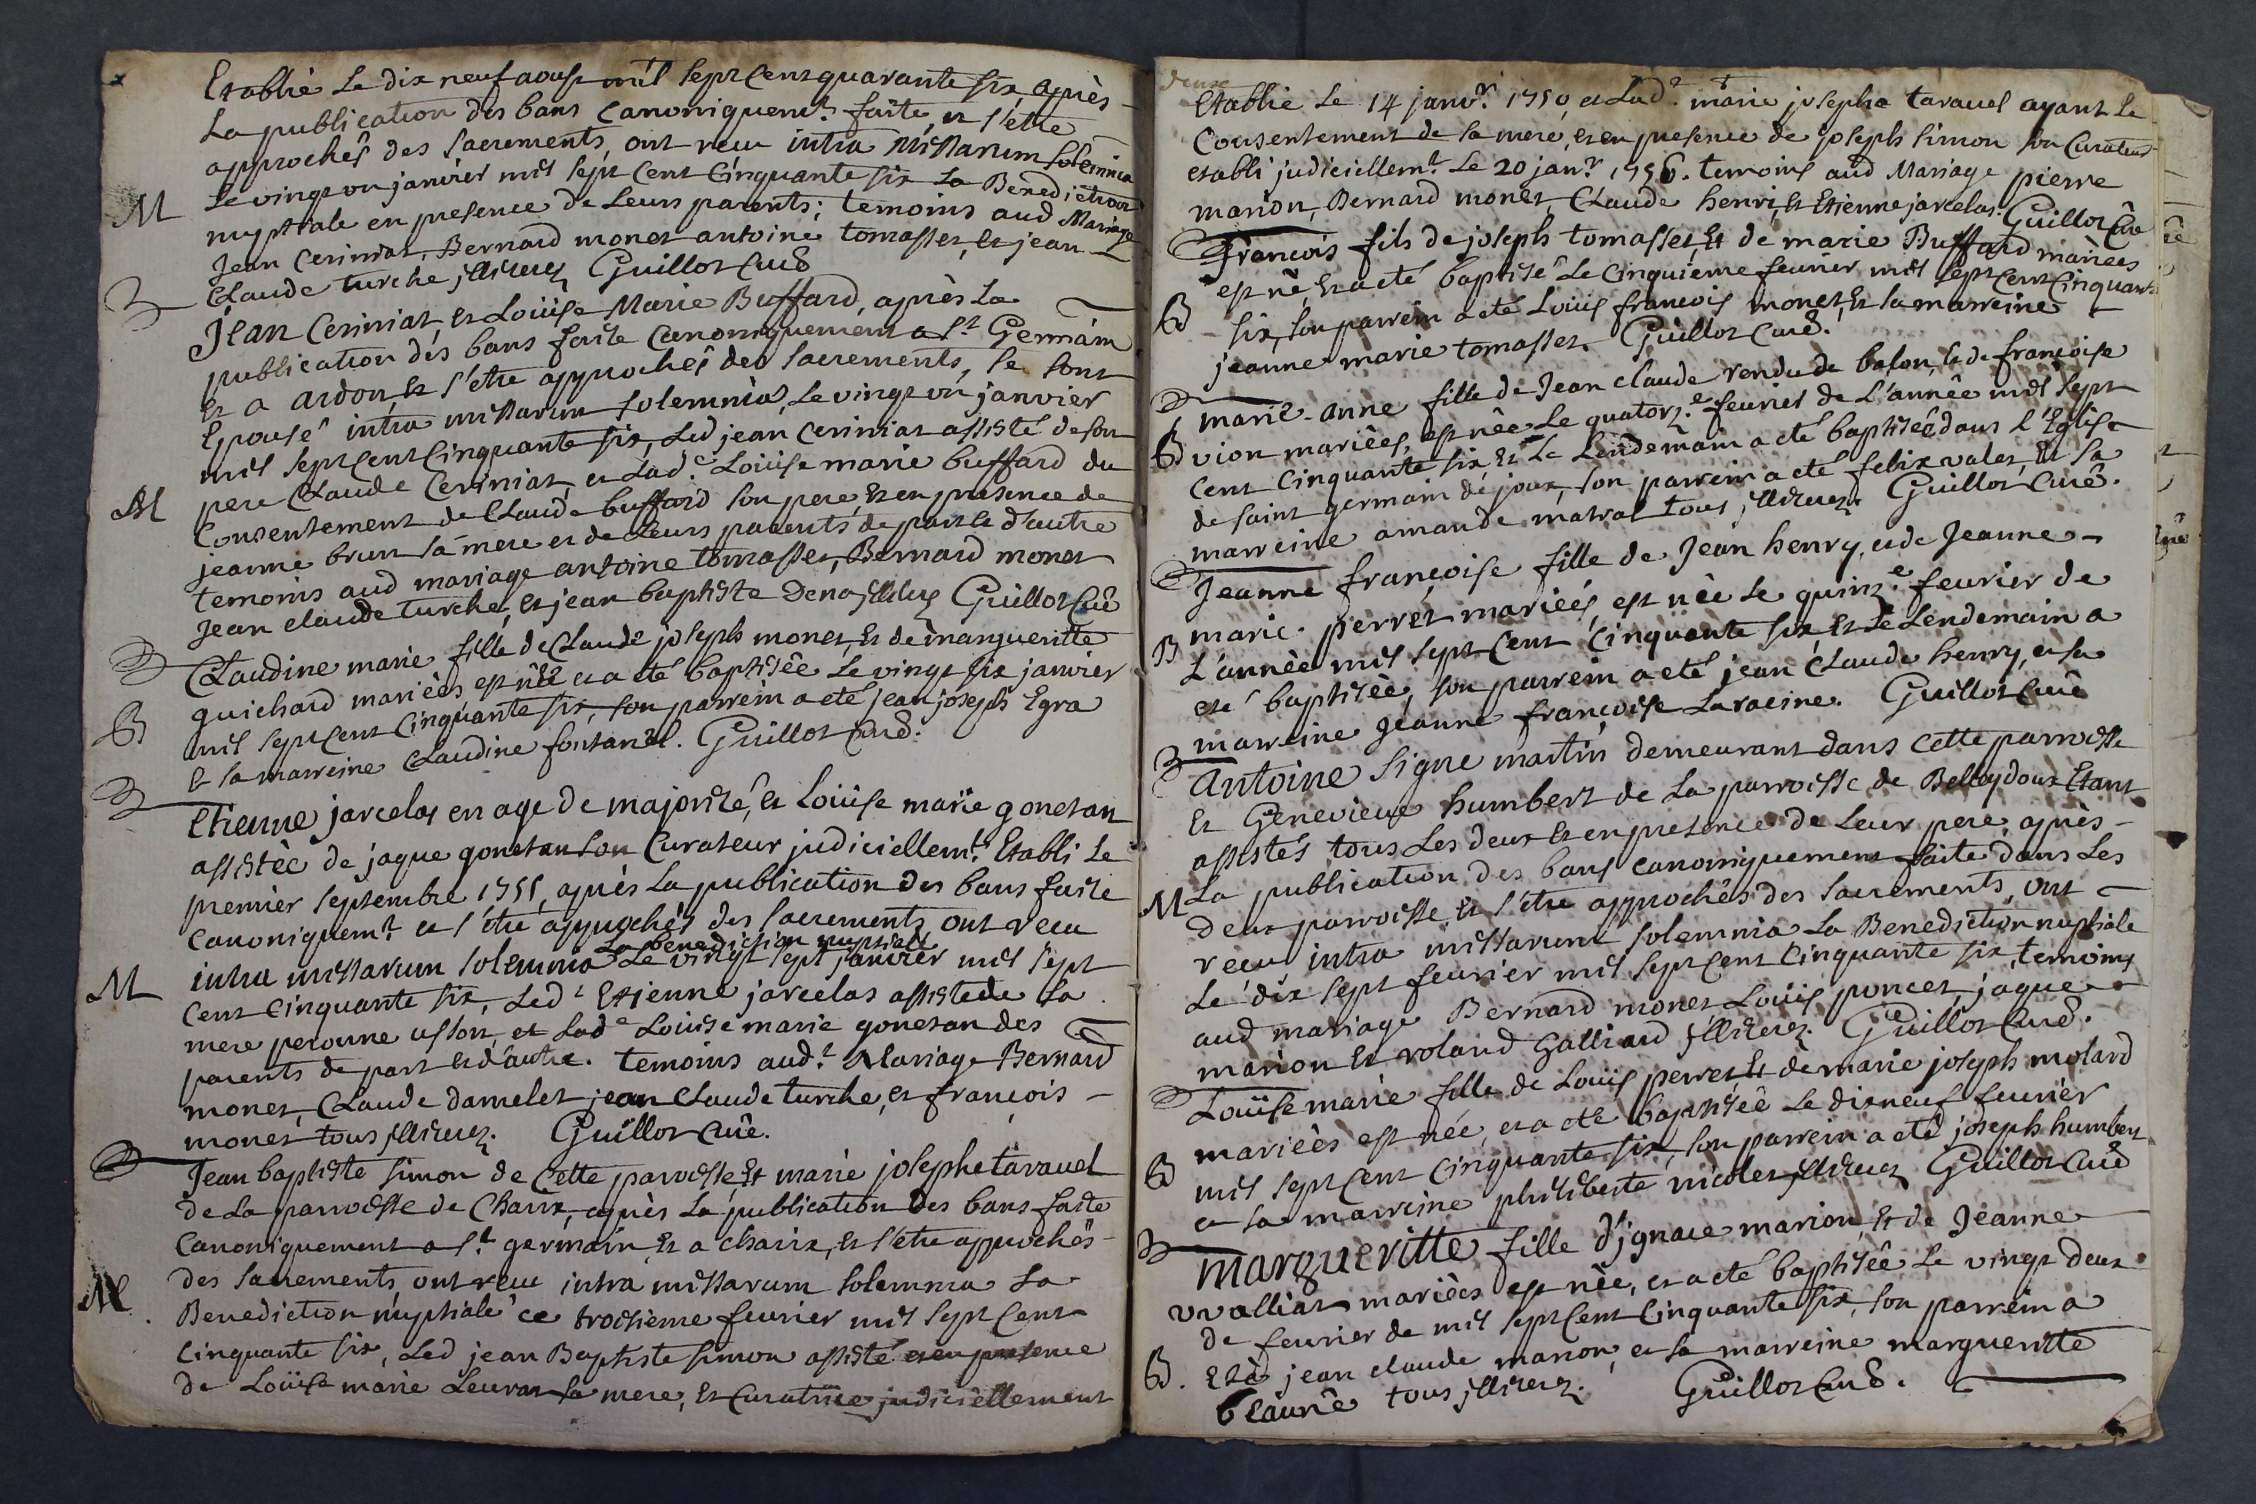 Etablie Le dix neuf aoust mil sept cent quarante six après
La publication des bans canoniquem.t faite, et s'etre
approchés des sacrements, ont recu intra missarum solemnia
Le vingt un janvier mil sept cent Cinquante six La Benediction
M
nuptiale en presence de Leurs parents; temoins aud Mariage
Jean Ceriniat, Bernard monet antoine tomasset, et jean
Claude turche illiterez Guillot Curé
Jean Ceriniat, et Loüise Marie Buffard, après La
publication des bans faite Canoniquement a S.t Germain
Et a ardon, et s'etre approchés des sacrements, se sont
Epousé intra missarum solemnia, Le vingt un janvier
mil sept cent Cinquante six, Led jean ceriniat assisté de son
M
pere Claude Ceriniat, et Lad.e Loüise marie buffard du
Consentement de Claude buffard son pere, et en presence de
jeanne brun sa mere et de Leurs parents de part et d'autre
temoins aud mariage antoine tomasset, Bernard monet
Jean claude turche, et jean baptiste Guillot Curé
Claudine marie fille de Claude joseph monet, et de margueritte
guichard mariées est née et a eté baptisée Le vingt six janvier
B
mil sept cent Cinquante six, son parrein a eté jean joseph Egra
Et sa marreine Claudine fontanel. Guillot Curé.
Etienne jarcelas en age de majorité, et Loüise marie gonetan
assistée de jaque gonetan son Curateur judiciellem.t Etabli Le
premier septembre 1755, après La publication des bans faite
Canoniquem.t et s'etre approchés des sacrements ont recu
La benediction nuptiale
intra missarum solemnia Le vingt sept janvier mil sept
M
Cent Cinquante six, Led.t Etienne jarcelas assisté de sa
mere peronne usson, et Lad.e Loüise marie gonetan des
parents de part et d'autre. temoins aud.t Mariage Bernard
monet, Claude damelet jean Claude turche, et françois
monet tous illiterez. Guillot Curé.
Jean baptiste simon de Cette parroisse, Et marie josephe taravel
de La parroisse de Charix, après La publication des bans faite
Canoniquement a S.t germain Et a charix, et s'etre approchés
des sacrements ont recu intra missarum solemnia La
M
Benediction nuptiale ce troisieme fevrier mil sept Cent
Cinquante six, Led jean Baptiste simon assisté et en presence
de Loüise marie Levrat sa mere, Et Curatrice judiciellement
Etablie Le 14 janv.r 1750, et Lad.e marie josephe taravel ayant Le
Consentement de sa mere, et en presence de joseph simon son Curateur
etabli judiciellem.t Le 20 jan.r 1756. temoins aud Mariage pierre
marion, Bernard monet, Claude henri, et Etienne jarcelas. Guillot Curé
François fils de joseph tomasset, Et de marie Buffard mariees
est né, Et a eté baptisé Le Cinquieme fevrier mil sept Cent Cinquante
B
six, son parrein a eté Loüis françois monet, Et sa marreine
jeanne marie tomasset. Guillot Curé.
marie-anne fille de Jean claude rendu de balon, et de françoise
B
vion mariées, est née Le quatorz.e fevrier de L'année mil sept
Cent Cinquante six, Et Le Lendemain a eté baptisée dans L'Eglise
de saint germain de joux, son parrein a eté felix valet, Et sa
marreine amande matrat tous illiterez. Guillot Curé.
Jeanne françoise fille de Jean henry, et de Jeanne
marie perret mariées, est née Le quinz.e fevrier de
B
L'année mil sept Cent Cinquante six, Et Le Lendemain a
eté baptisée, son parrein a eté jean Claude henry, et sa
marreine Jeanne françoise Laracine. Guillot Curé
Antoine signe martin demeurant dans Cette parroisse
Et Genevieve humbert de La parroisse de Belleydoux Etant
assistés tous Les deux Et en presence de Leur pere, après
La publication des bans canoniquement faite dans Les
M
deux parroisse, Et s'etre approchés des sacrements, ont
recu intra missarum solemnia La Benediction nuptiale
Le dix sept fevrier mil sept Cent Cinquante six, temoins
aud mariage Bernard monet, Loüis poncet, jaque
marion Et roland Galliard illiterez. Guillot Curé.
Loüise marie fille de Loüis perret, Et de marie joseph molard
mariées est née, et a eté baptisée Le dixneuf fevrier
B
mil sept Cent Cinquante six, son parrein a eté joseph humbert
et sa marreine philiberte nicolet illiterez Guillot Curé
Margueritte fille d'ignace marion, Et de Jeanne
vualliat mariées est née, et a eté baptisée Le vingt deux
de fevrier de mil sept Cent Cinquante six, son parrein a
B.
Eté jean claude marion, et sa marreine margueritte
blaune tous illiterez. Guillot Curé.